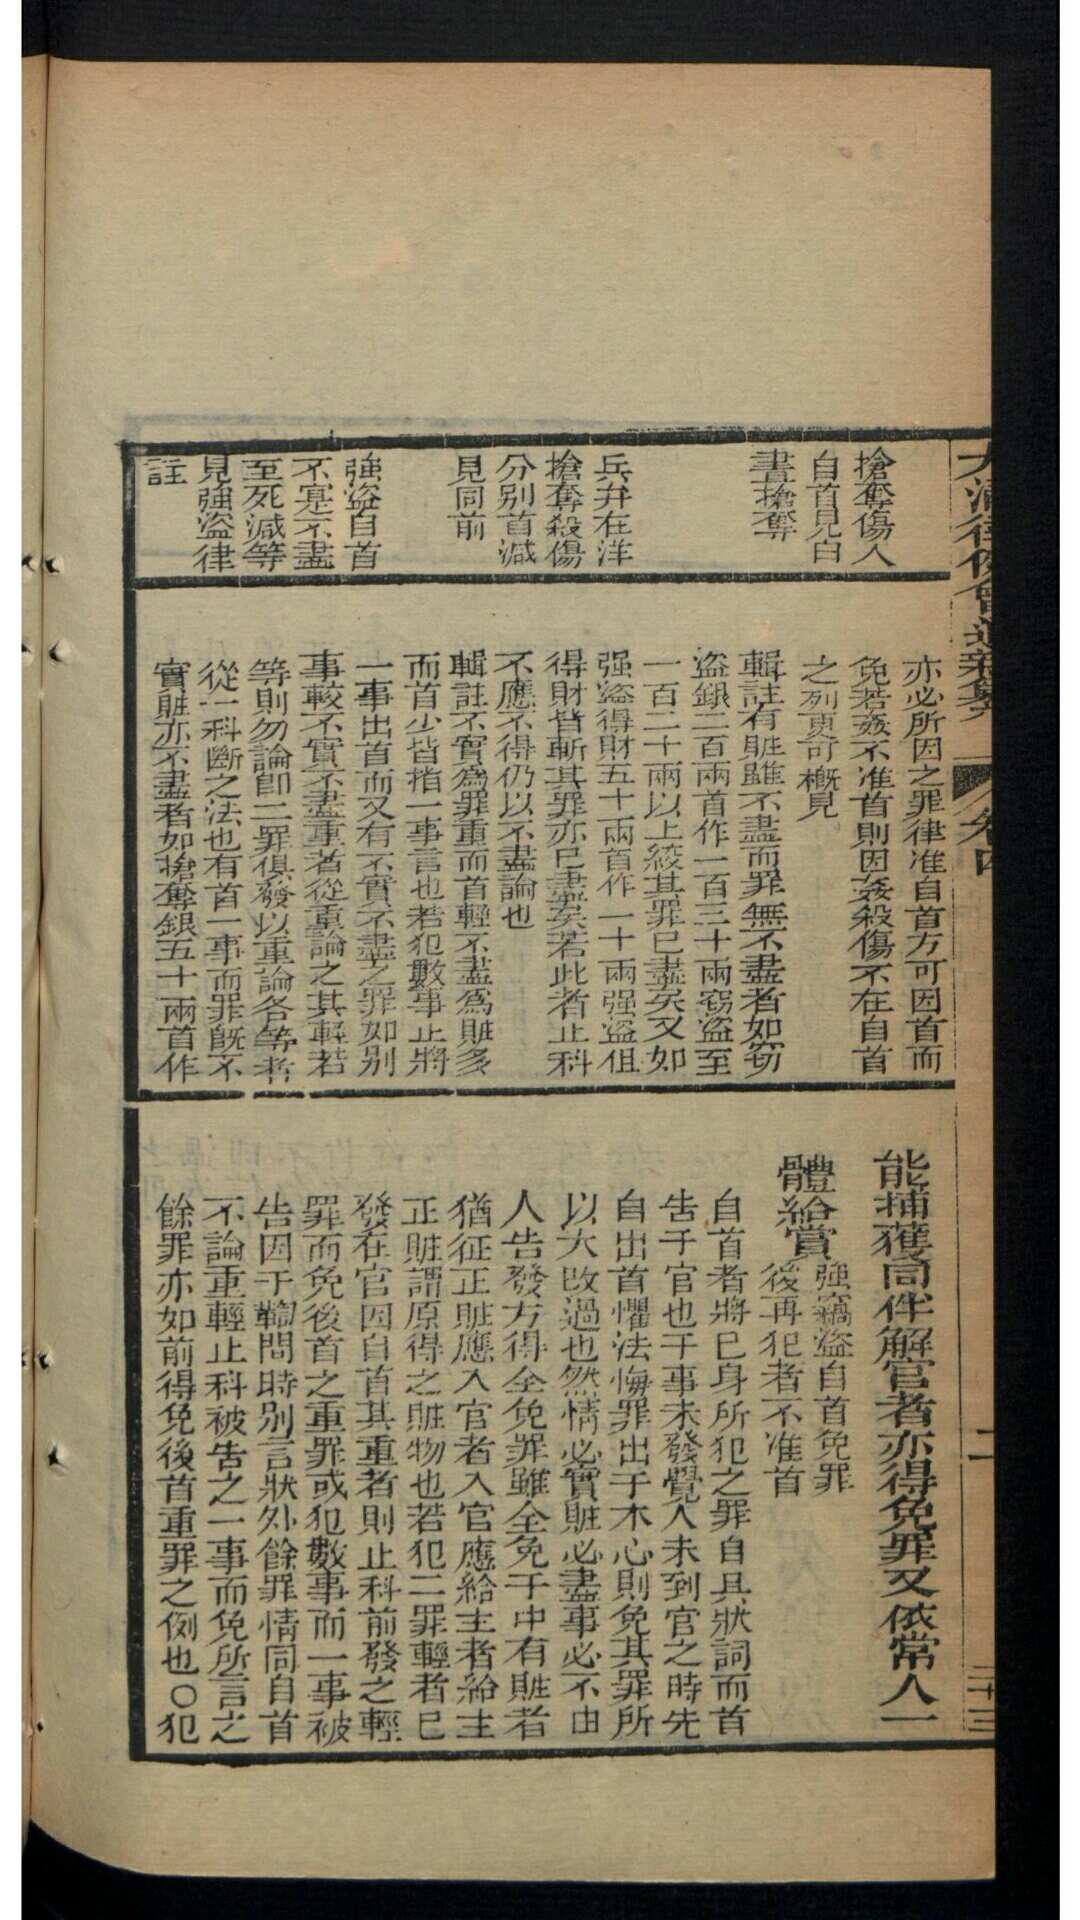 搶奪傷人
自首見白
晝搶奪
兵弁在洋
搶奪殺傷
分別首減
見同前
強盜自首
不寔不盡
至死減等
見強盜律
註
亦必所因之罪律准自首方可因首而
免若姦不准首則因姦殺傷不在自首
之列更可概見
輯註有賍雖不盡而罪無不盡者如窃
盜銀二百兩首作一百三十兩窃盜至
一百二十兩以上絞其罪已盡矣又如
强盜得財五十兩首作一十兩强盜但
得財皆斬其罪亦已盡矣若此者止科
不應不得仍以不盡論也
輯註不實爲罪重而首輕不盡爲賍多
而首少皆指一事言也若犯數事止將
一事出首而又有不實不盡之罪如别
事較不實不盡重者從重論之其輕若
等則勿論卽二罪俱發以重論各等者
從一科斷之法也有首一事而罪旣不
實賍亦不盡者如搶奪銀五十兩首作
能捕獲同伴解官者亦得免罪又依常人一
體給賞
強竊盜自首免罪
後再犯者不准首
自首者將已身所犯之罪自具狀詞而首
告于官也于事未發覺人未到官之時先
自出首懼法悔罪出于本心則免其罪所
以大改過也然情必實賍必盡事必不由
人告發方得全免罪雖全免于中有賍者
猶征正賍應入官者入官應給主者給主
正賍謂原得之賍物也若犯二罪輕者已
發在官因自首其重者則止科前發之輕
罪而免後首之重罪或犯數事而一事被
告因于鞫問時别言狀外餘罪情同自首
不論重輕止科被告之一事而免所言之
餘罪亦如前得免後首重罪之例也〇犯
大清律例會通新纂
卷四
二十三